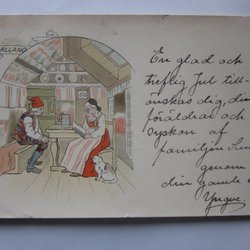 HALLAND
En glad och
treflig Jul till-
önskas dig, dina
föräldrar och
syskon af
familjen
genom
din gamle
Yngve.